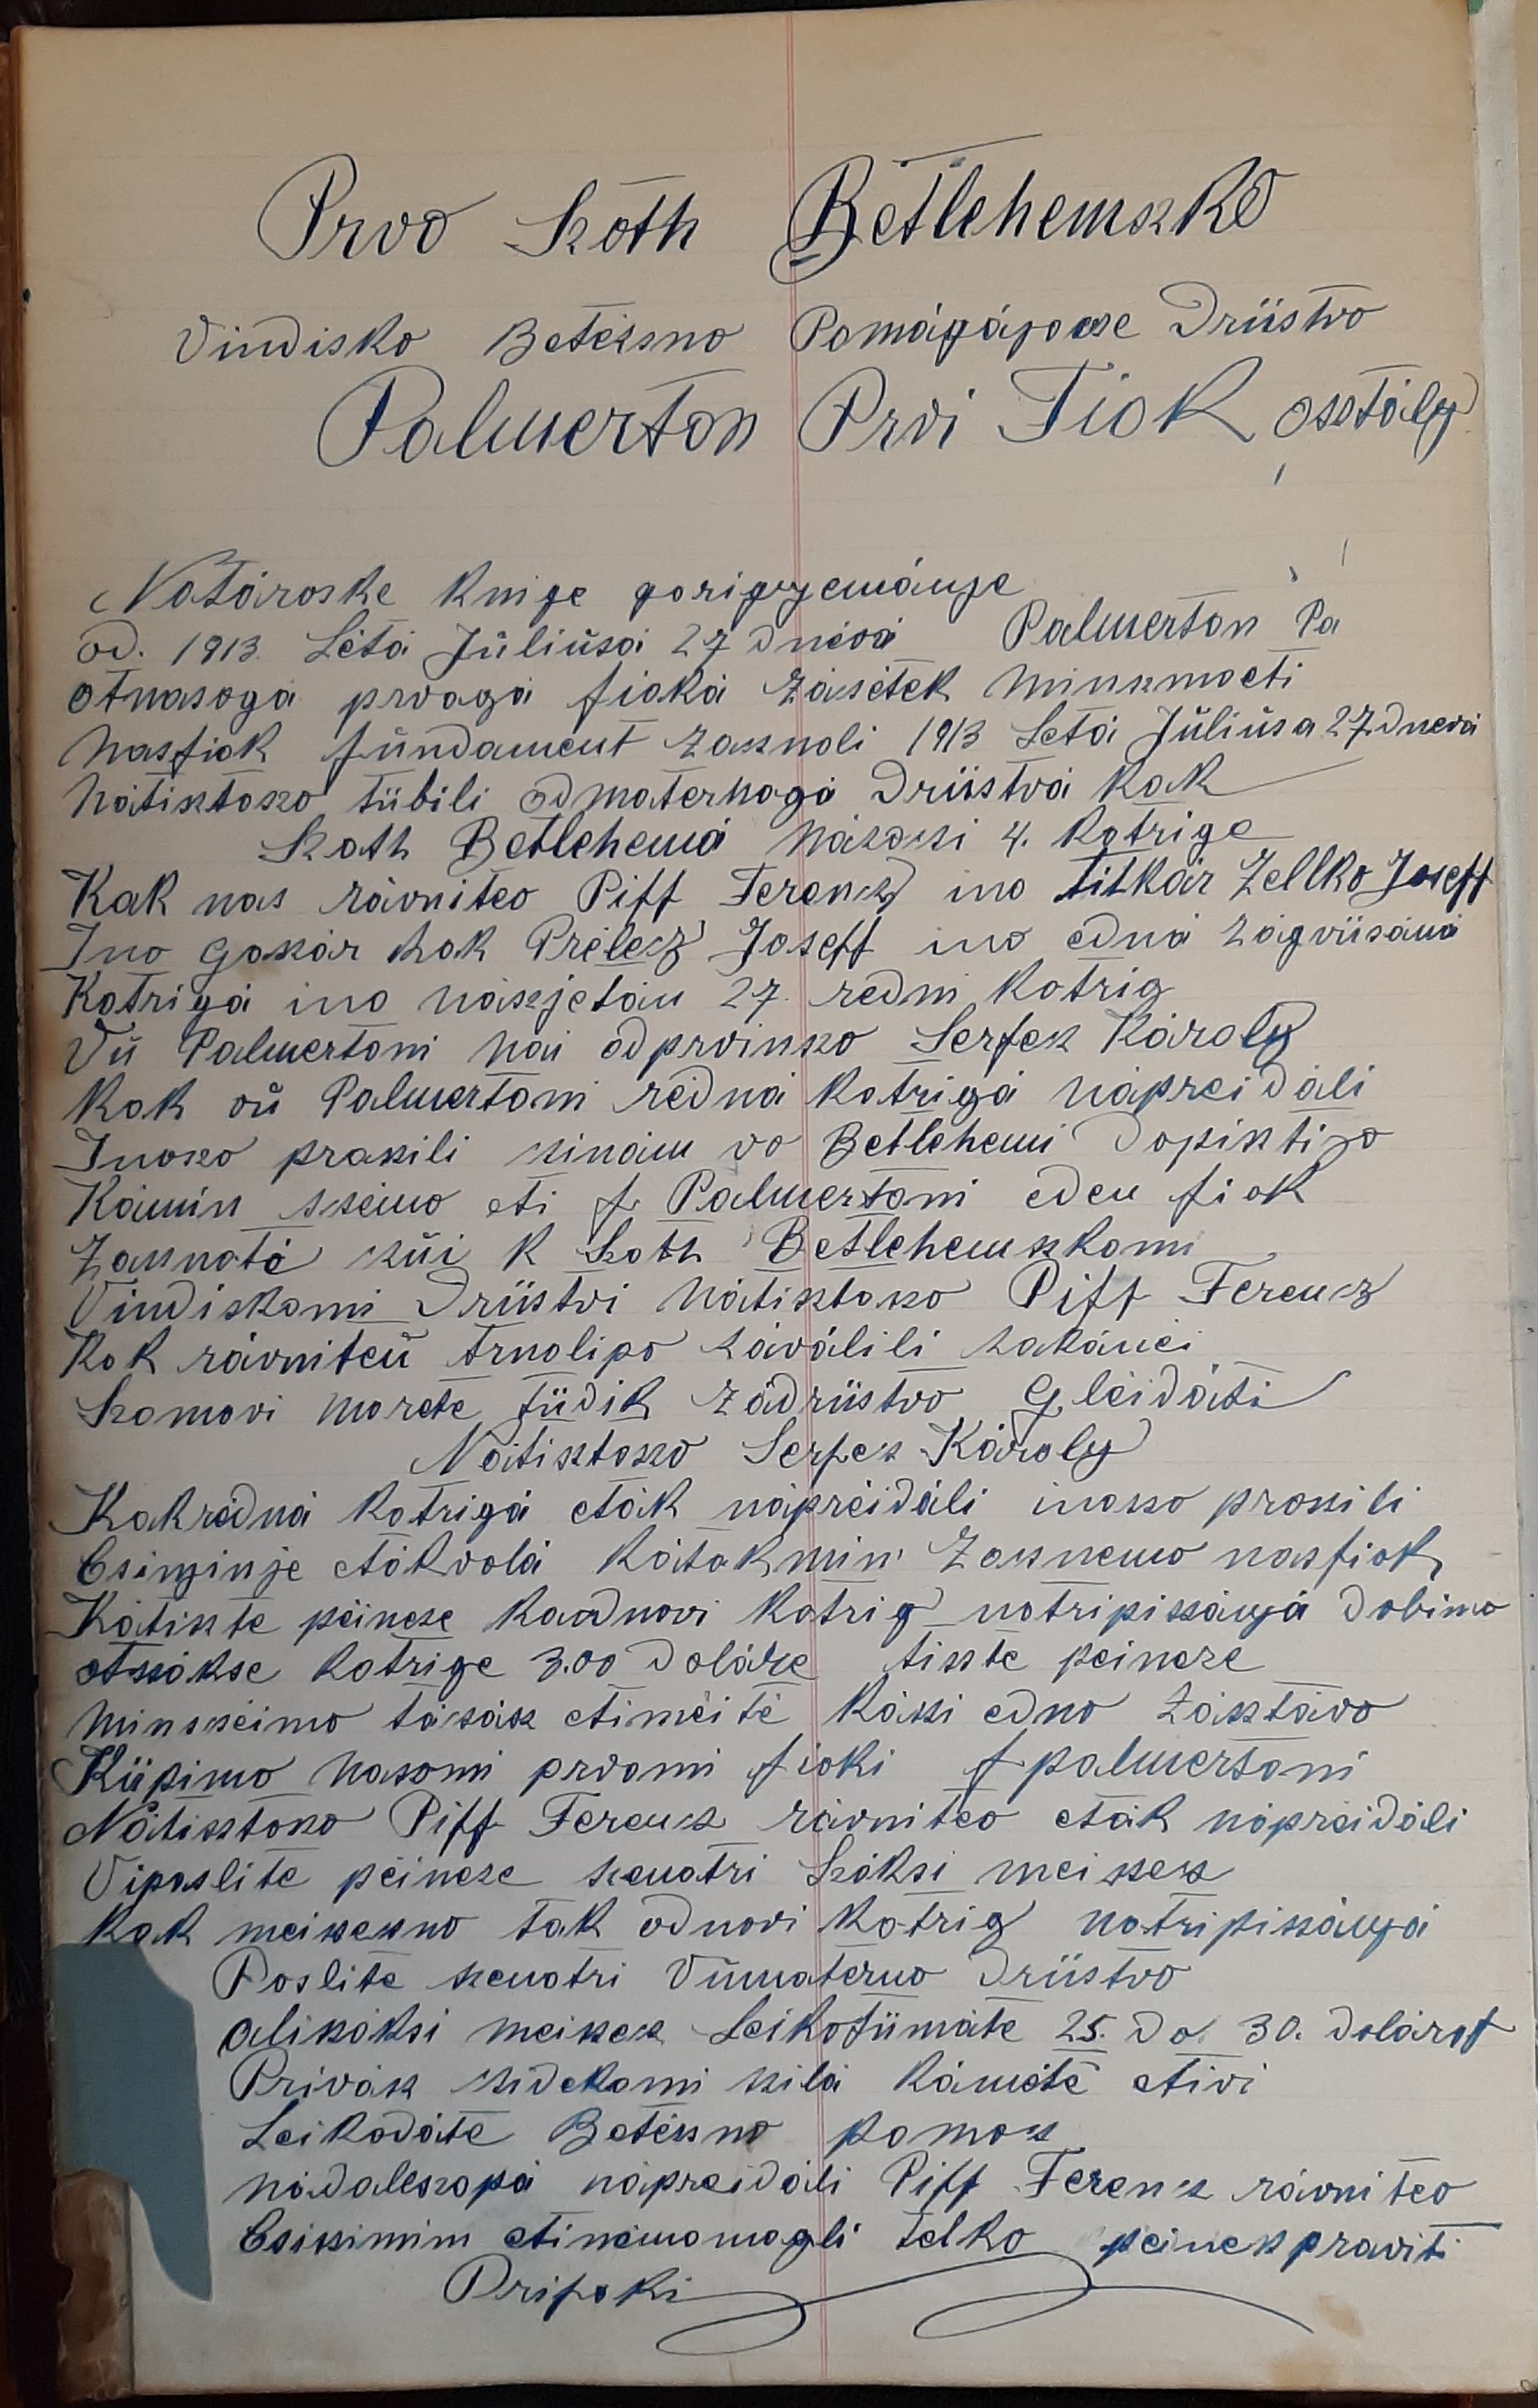 Prvo Szoth Betlehemszko
Vindisko Betézsno Pomágájocse Drüstvo
Palmerton Prvi Fiok osztály
Notároske knige gorigjemánje
od. 1913. Létá Júliúsá 27 dnévá Palmerton Pa
otnasogá prvogá fioká zásétek minszmoeti
nasfiok fúndament zasznoli 1913 Létá Júliúsa 27 dnevá
nátisztoszo tübili odmaternogá Drüstvá kak
Szoth Betlehemá násosi 4. kotrige
Kak nas rávniteo Piff Ferencz ino titkár Zellko Joseff
Ino gosár kok Prélecz Joseff ino edná zágvüsáná
Kotrigá ino násszjetáu 27. redni kotrig
Vü Palmertoni nái odprvinszo Serfecz Károly
kok vü Palmertoni rédná kotrigá náprei dáli
Inoszo proszili szinám vo Betlehemi dopisztijo
Kámin sséimo eti f Palmertoni eden fiok
Zasznotá szüi k Szoth Betlehemszkomi
Vindiskomi Drüstvi nátisztoszo Piff Ferencz
Kok rávniteü trnolipo záválili zakánei
Szomovi morete tüdik zádrüstvo Gléidáti
Nátisztoszo Serfecz Károly
Kakrédná kotrigá eták nápréidáli inoszo proszili
Csiminje etákvolá kátak min Zasznemo nasfiok
Kátiszte péineze kaednovi kotrig notripiszánjá dobimo
otszákse kotrige 3.00 doláre tiszte péineze
minszéimo tásász etiméité kászi edno zásztávo
Küpimo nasomi prvomi fioki f palmertoni
Nátisztoszo Piff Ferencz rávniteo eták nápréidáli
Viposlite péineze szenotri száksi meiszecz
kak meiszeszno tak odnovi kotrig notripiszánjá
Poslite szenotri Vümaterno Drüstvo
aliszáksi meiszecz Leikotümáte 25. do. 30. doláróf
Privász szidekomi szilá kámeté etivi
Leikodáte Betézsno pomocs
nádaleszopá nápreidáli Piff Ferencz rávniteo
Csiszimim etinémomogli telko péinesz praviti
Pripoki